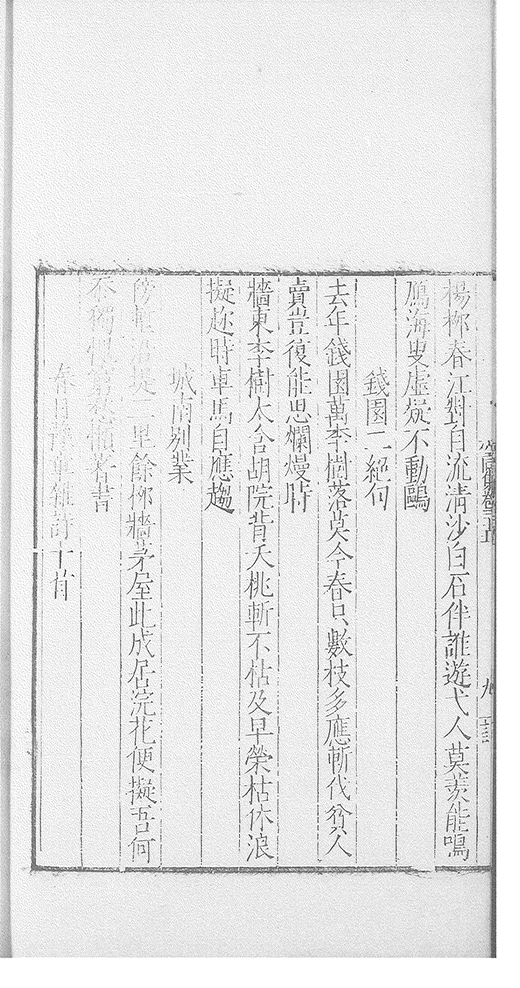 楊柳春江對白流清沙白石伴誰遊弋人莫羡能鳴
鴈海叟虛疑不動鷗
錢園二絕句
去年錢園萬李樹落莫今春只數枝多應斬伐貧人
賣豈復能思爛熳時
牆東李樹太含胡院背夭桃斬不枯及早榮枯休浪
擬趂時車馬自應趨
城南別業
傍 堤 里餘柳牆茅屋此成居浣花便擬吾何
不獨 懶著書
春日 雜詩十首